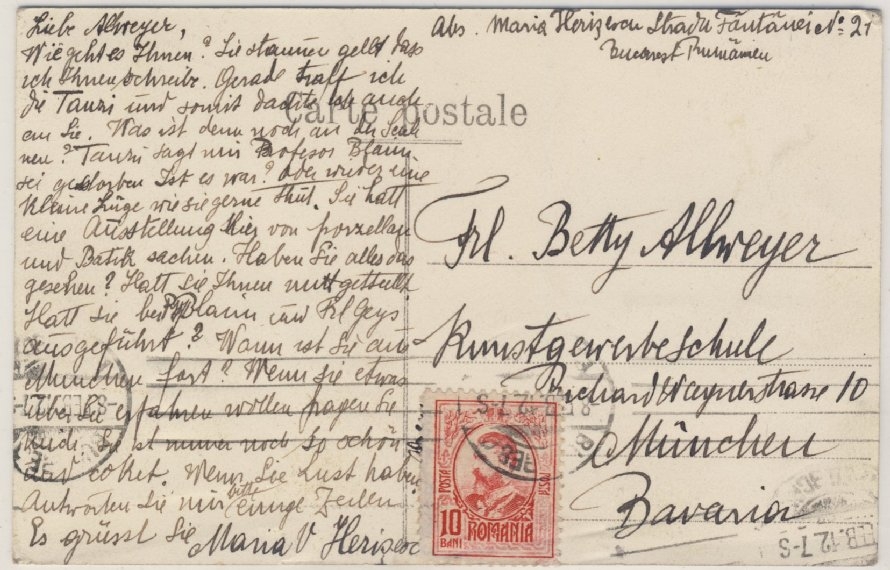 Liebe Allweyer,
Wie geht es Ihnen? Sie staunen gellt dass
ich Ihnen schreibe. Gerade traff ich
die Tanzi und somit dachte ich auch
an Sie. Was ist denn noch an der
nen? Tanzi sagt mir Profesor Blaim
sei gestorben Ist es war? oder wieder eine
kleine Lüge wie sie gerne thut. Sie hatt
eine Ausstellung hier von porzellan
und Batik sachen. Haben Sie alles das
gesehen? Hatt sie Ihnen mitgetheilt
Hatt sie bei Blaim und Frl Geys
ausgeführt? Wann ist Sie aus
München fort? Wenn sie etwas
über Sie erfahren wollen fragen Sie
mich. Sie ist immer noch so schön
und coket. Wenn Sie Lust haben
Antworten Sie mir bitte einige Zeilen
Es grüsst Sie Maria V
Abs. Maria Strada Fântânei No. 21
Bucarest Rumänien
Carte postale
Frl. Betty Allweyer
Kunstgewerbeschule
Richard Wagnerstrasse 10
München
Bavaria
POSTA
10
BANI
ROMANIA
FEB.12.7-S